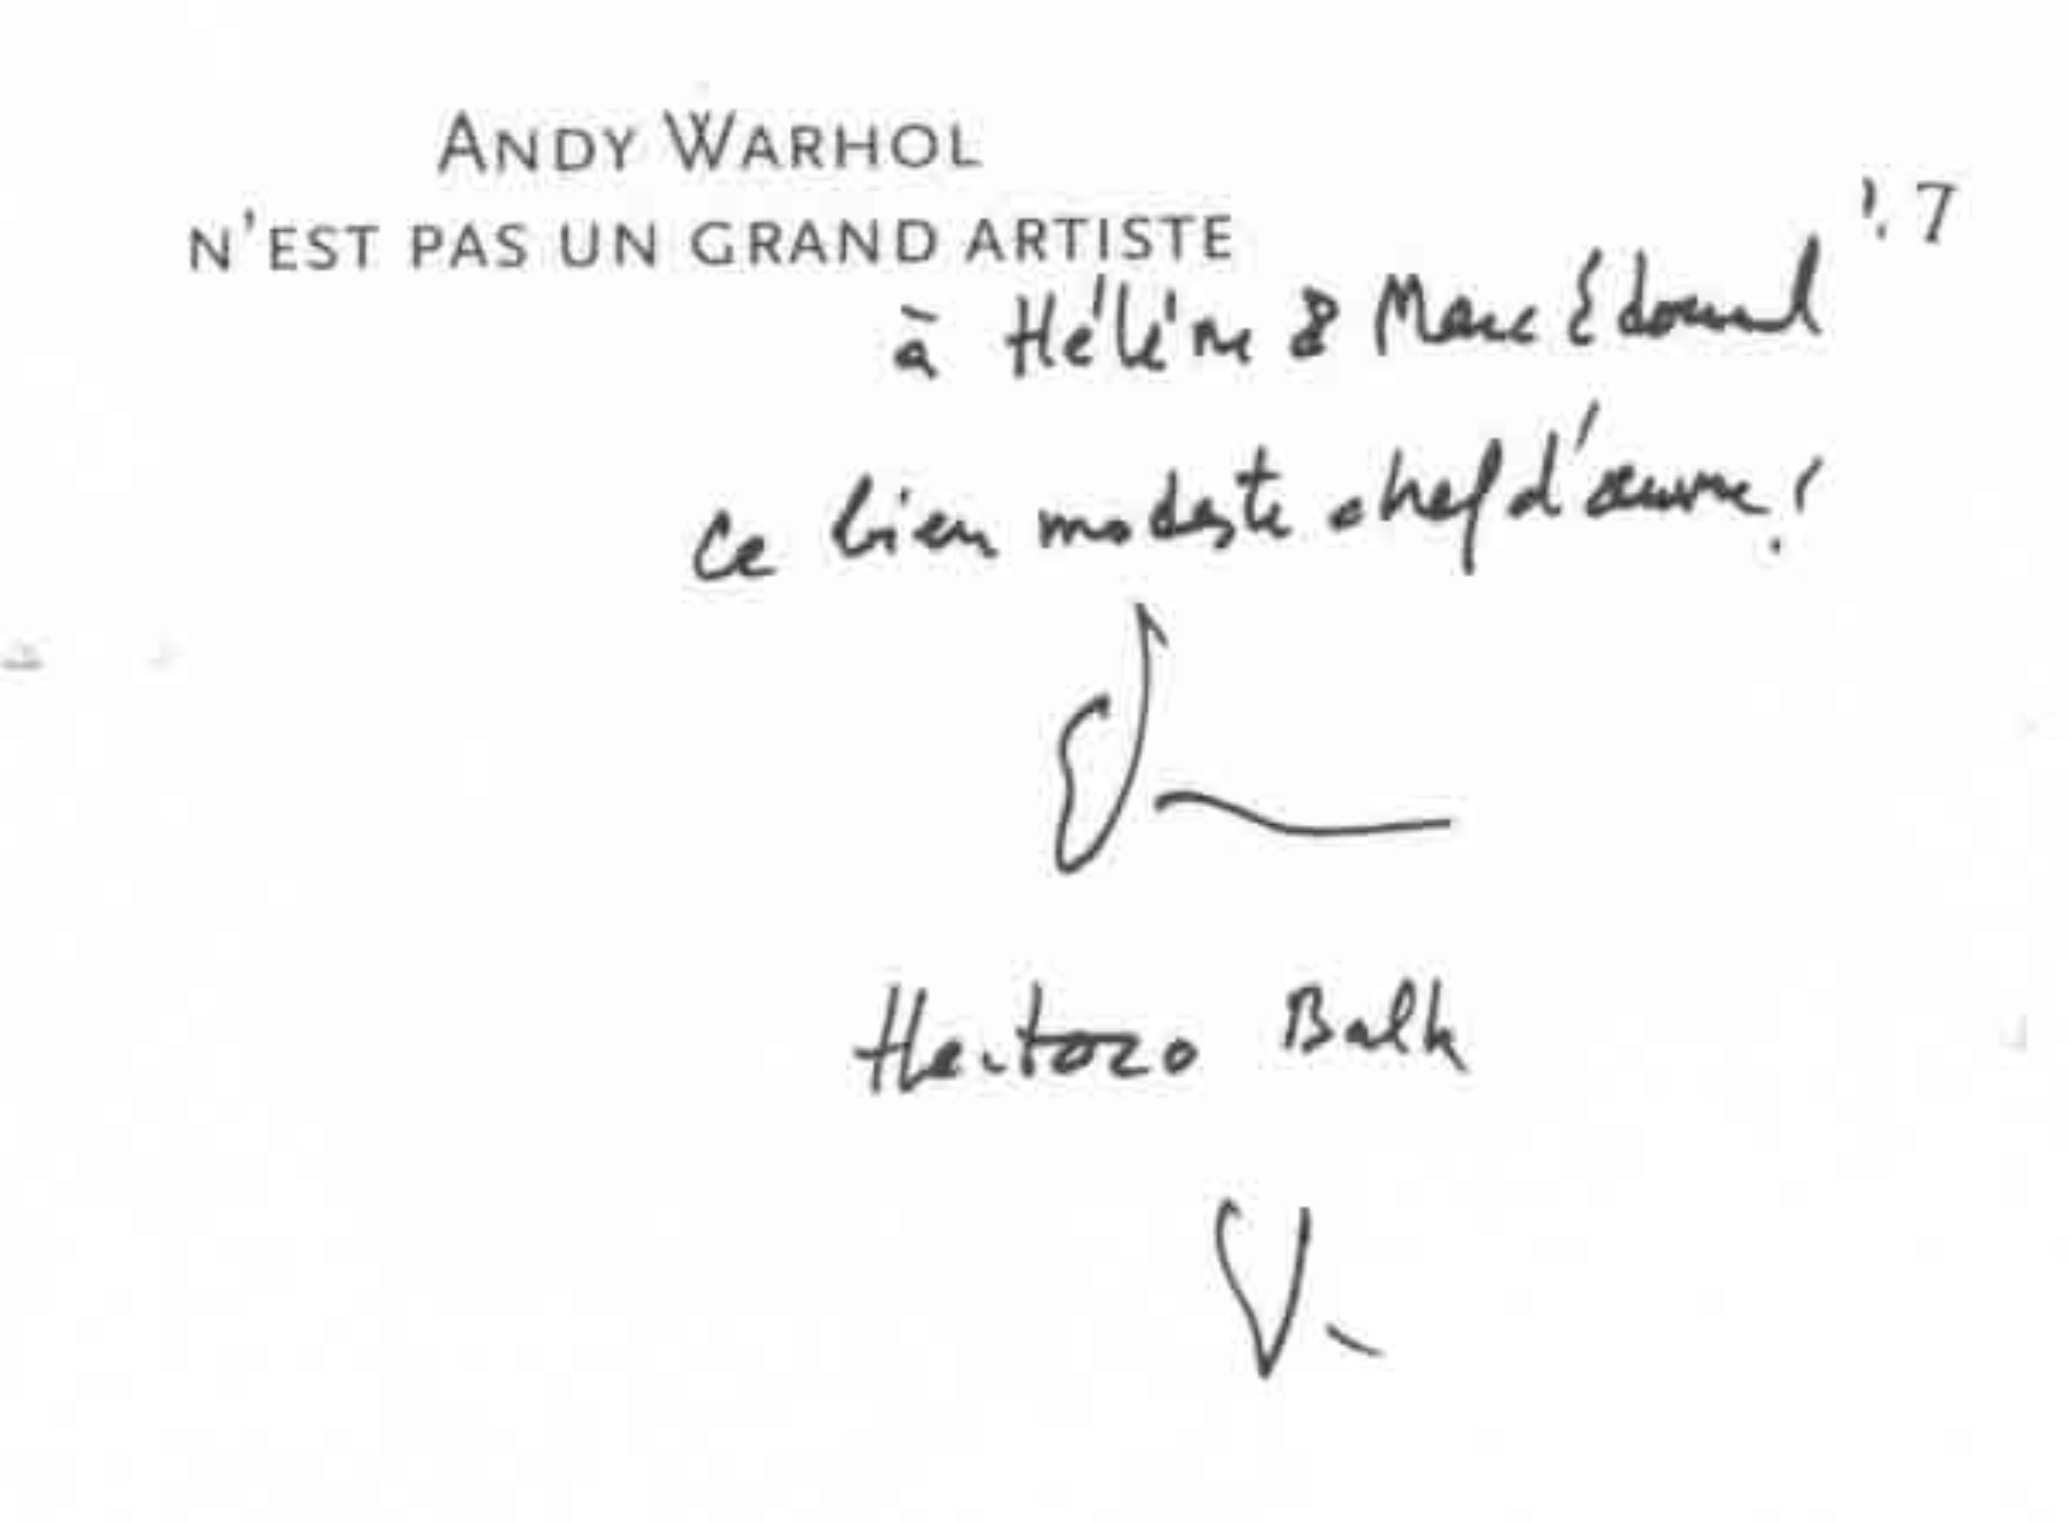 ANDY WARHOL
N'EST PAS UN GRAND ARTISTE
à Hélène & Marc Édouard
ce bien modeste chef d'œuvre !
Balk